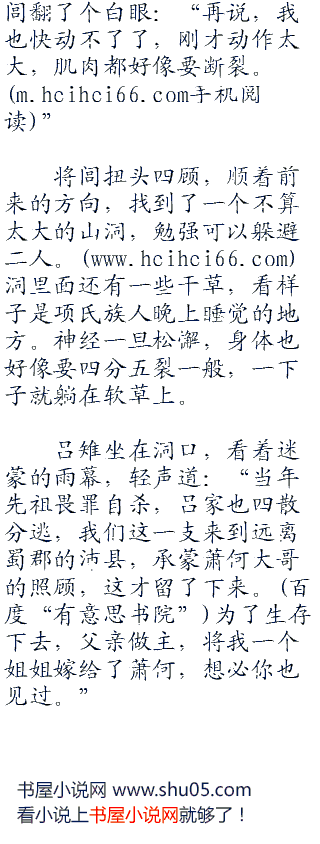 闾翻了个白眼：“再说，我
也快动不了了，刚才动作太
大，肌肉都好像要断裂。
(m.hcihci66.com手机阅
读)”
将闾扭头四顾，顺着前
来的方向，找到了一个不算
太大的山洞，勉强可以躲避
二人。(www.hcihci66.com)
洞里面还有一些干草，看样
子是项氏族人晚上睡觉的地
方。神经一旦松懈，身体也
好像要四分五裂一般，一下
子就躺在软草上。
吕雉坐在洞口，看着迷
蒙的雨幕，轻声道：“当年
先祖畏罪自杀，吕家也四散
分逃，我们这一支来到远离
蜀郡的沛县，承蒙萧何大哥
的照顾，这才留了下来。(百
度“有意思书院”)为了生存
下去，父亲做主，将我一个
姐姐嫁给了萧何，想必你也
见过。”
书屋小说网 www.shu05.com
看小说上书屋小说网就够了！